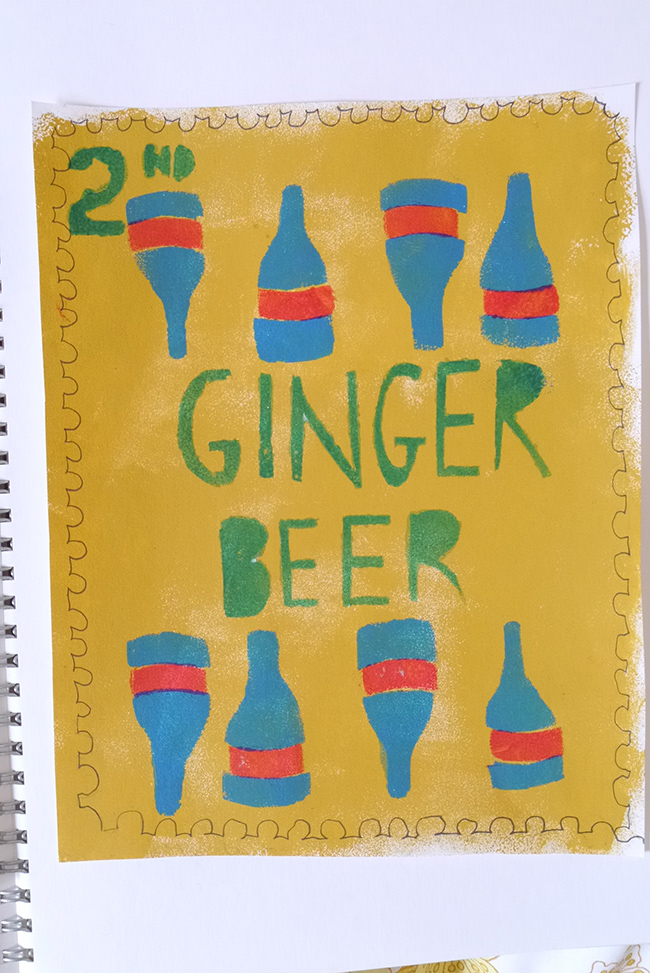 2ND
GINGER
BEER